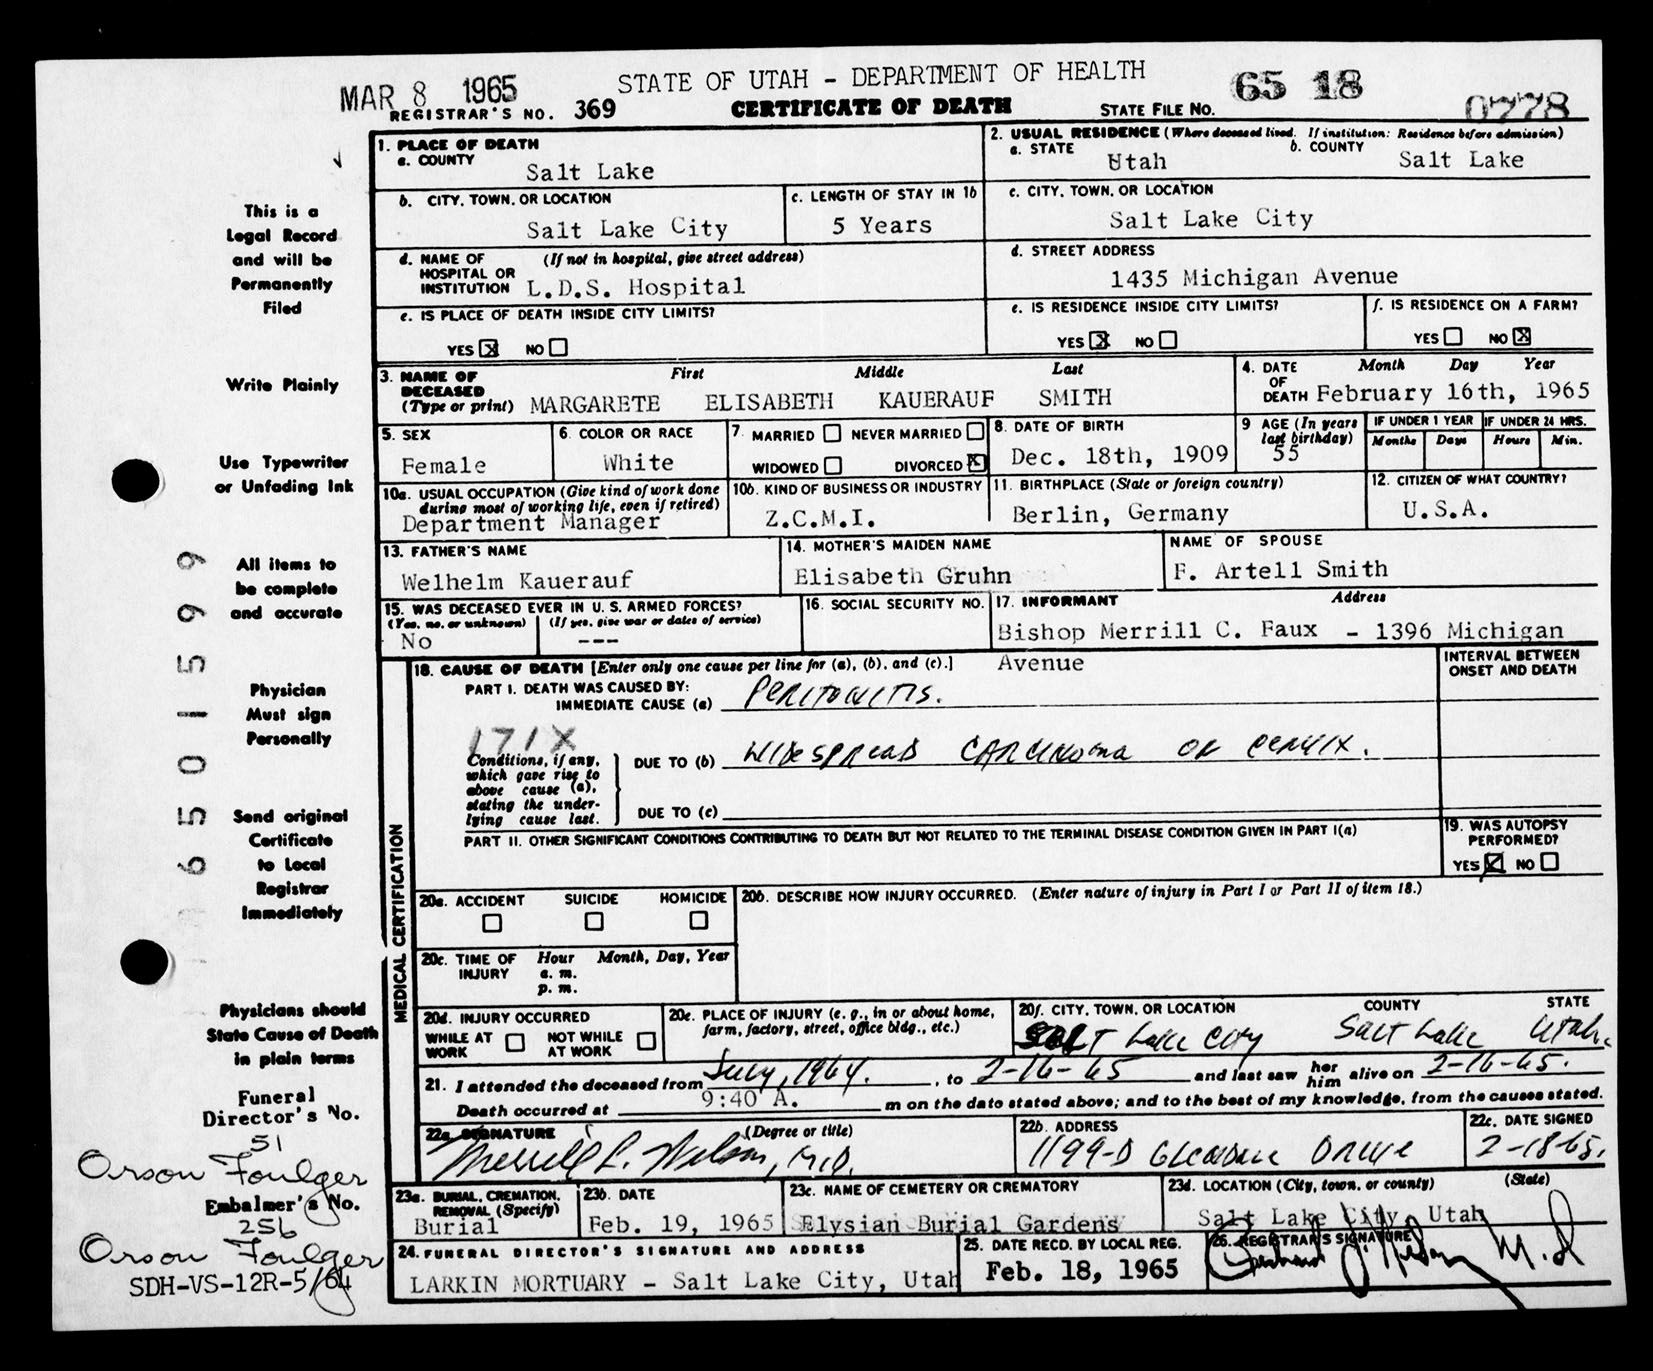 MAR 8 1965
STATE OF UTAH - DEPARTMENT OF HEALTH
65 18 0778
REGISTRAR'S NO. 369
CERTIFICATE OF DEATH
STATE FILE NO.
1. PLACE OF DEATH
a. COUNTY
Salt Lake
2. USUAL RESIDENCE (Where deceased lived. If institution: Residence before admission)
a. STATE Utah b. COUNTY Salt Lake
b. CITY, TOWN, OR LOCATION
Salt Lake City
c. LENGTH OF STAY IN 1b
5 Years
c. CITY, TOWN, OR LOCATION
Salt Lake City
d. NAME OF (If not in hospital, give street address)
HOSPITAL OR
INSTITUTION L.D.S. Hospital
d. STREET ADDRESS
1435 Michigan Avenue
e. IS PLACE OF DEATH INSIDE CITY LIMITS?
YES X NO
e. IS RESIDENCE INSIDE CITY LIMITS?
YES X NO
f. IS RESIDENCE ON A FARM?
YES NO X
3. NAME OF DECEASED (Type or print)
First Middle Last
MARGARETE ELISABETH KAUERAUF SMITH
4. DATE OF DEATH
Month Day Year
February 16th, 1965
5. SEX
Female
6. COLOR OR RACE
White
7. MARRIED NEVER MARRIED
WIDOWED DIVORCED X
8. DATE OF BIRTH
Dec. 18th, 1909
9 AGE (In years last birthday)
55
IF UNDER 1 YEAR
Months Days
IF UNDER 24 HRS.
Hours Min.
10a. USUAL OCCUPATION (Give kind of work done
during most of working life, even if retired)
Department Manager
10b. KIND OF BUSINESS OR INDUSTRY
Z.C.M.I.
11. BIRTHPLACE (State or foreign country)
Berlin, Germany
12. CITIZEN OF WHAT COUNTRY?
U.S.A.
13. FATHER'S NAME
Welhelm Kauerauf
14. MOTHER'S MAIDEN NAME
Elisabeth Gruhn
NAME OF SPOUSE
F. Artell Smith
15. WAS DECEASED EVER IN U. S. ARMED FORCES?
(Yes, no, or unknown) (If yes, give war or dates of service)
No ---
16. SOCIAL SECURITY NO.
17. INFORMANT Address
Bishop Merrill C. Faux - 1396 Michigan
Avenue
MEDICAL CERTIFICATION
18. CAUSE OF DEATH [Enter only one cause per line for (a), (b), and (c).]
INTERVAL BETWEEN
ONSET AND DEATH
PART I. DEATH WAS CAUSED BY:
IMMEDIATE CAUSE (a) Peritonitis.
171X
Conditions, if any,
which gave rise to
above cause (a),
stating the under-
lying cause last.
DUE TO (b) Widespread carcinoma of cervix.
DUE TO (c)
PART II. OTHER SIGNIFICANT CONDITIONS CONTRIBUTING TO DEATH BUT NOT RELATED TO THE TERMINAL DISEASE CONDITION GIVEN IN PART I(a)
19. WAS AUTOPSY
PERFORMED?
YES X NO
20a. ACCIDENT SUICIDE HOMICIDE
20b. DESCRIBE HOW INJURY OCCURRED. (Enter nature of injury in Part I or Part II of item 18.)
20c. TIME OF INJURY
Hour Month, Day, Year
a. m.
p. m.
20d. INJURY OCCURRED
WHILE AT WORK NOT WHILE AT WORK
20e. PLACE OF INJURY (e. g., in or about home,
farm, factory, street, office bldg., etc.)
20f. CITY, TOWN, OR LOCATION COUNTY STATE
Salt Lake City Salt Lake Utah.
21. I attended the deceased from July, 1964. , to 2-16-65 and last saw her him alive on 2-16-65.
Death occurred at 9:40 A. m on the date stated above; and to the best of my knowledge, from the causes stated.
22a. SIGNATURE (Degree or title)
Merrill L. Wilson, M.D.
22b. ADDRESS
1199-D Glendale Drive
22c. DATE SIGNED
2-18-65.
23a. BURIAL, CREMATION,
REMOVAL (Specify)
Burial
23b. DATE
Feb. 19, 1965
23c. NAME OF CEMETERY OR CREMATORY
Elysian Burial Gardens
23d. LOCATION (City, town, or county) (State)
Salt Lake City, Utah
24. FUNERAL DIRECTOR'S SIGNATURE AND ADDRESS
LARKIN MORTUARY - Salt Lake City, Utah
25. DATE RECD. BY LOCAL REG.
Feb. 18, 1965
26. REGISTRAR'S SIGNATURE
M.D
This is a
Legal Record
and will be
Permanently
Filed
Write Plainly
Use Typewriter
or Unfading Ink
All items to
be complete
and accurate
Physician
Must sign
Personally
Send original
Certificate
to Local
Registrar
Immediately
Physicians should
State Cause of Death
in plain terms
Funeral
Director's No.
51
Orson Foulger
Embalmer's No.
256
Orson Foulger
SDH-VS-12R-5/64
650159 9